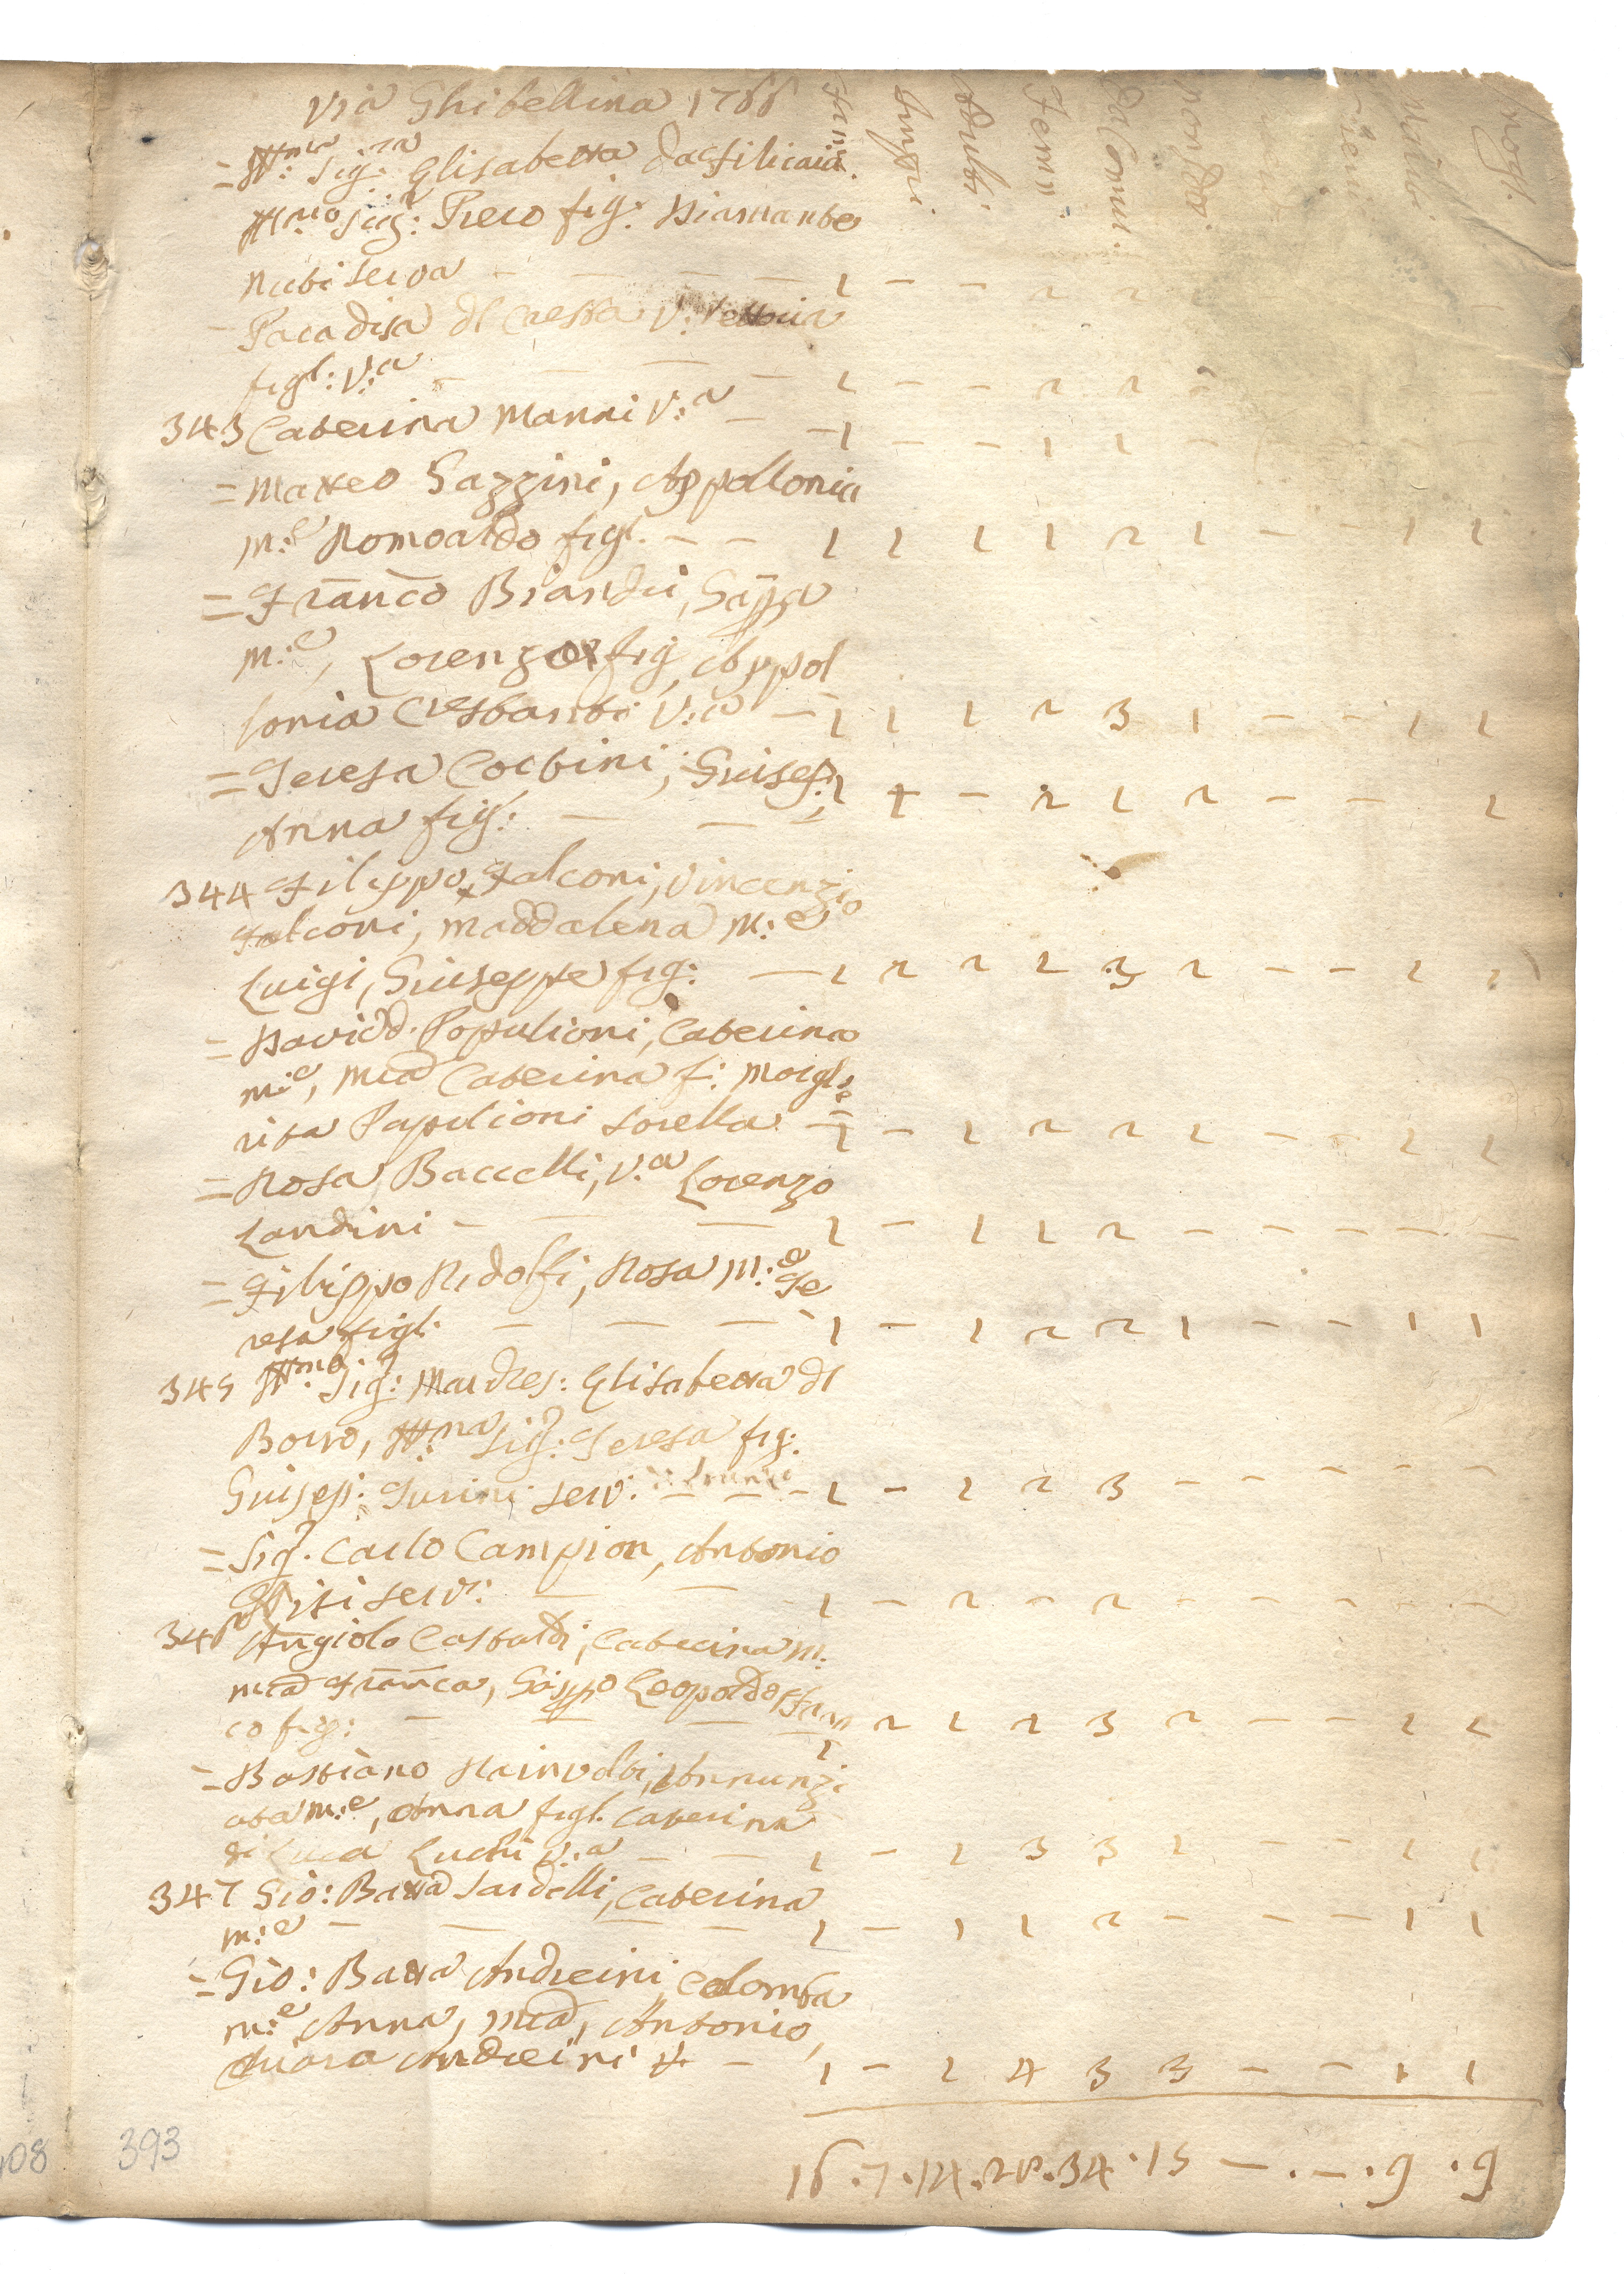 Via Ghibellina 1766
Fam: Impu: Adulti Femin Da Comun: non Da Mariti mogl:
= Ill:ma Sig:ra Elisabetta da Filicaia.
Ill:mo Sig:r Piero fig: Diamante
Nuti serva - - - - 1 - - 2 2
- V:
figl: V:a - - - 1 - - 2 2
343 Caterina Manni V:a - - 1 - - 1 1 -
= Matteo Gazzini, Appollonia
m:e Romoaldo figl. - - 1 1 1 1 2 1 - - 1 1
= Franco Biandii, Gsppa
m:e, Lorenzo fig, Appol
lonia V:a - 1 1 1 2 3 1 - - 1 1
= Teresa Corbini, Giusep:
Anna fig: - - - 1 + - 2 1 2 - - 1
344 Filippo Falconi, Vincenzio
Falconi, Maddalena m:e
Luigi, Giuseppe fig: - 1 2 2 1 3 2 - - 1 1
= David Populioni, Caterina
m:e, Mca Caterina f: Morghe
rita Papulioni sorella - 1 - 1 2 2 1 - - 1 1
= Rosa Baccelli, V:a Lorenzo
Landini - - - 1 - 1 1 2 - - - - -
= Filippo Ridolfi, Rosa m:e Te
resa figl. - - - 1 - 1 2 2 1 - - 1 1
345 Ill:mo Sig:r Marches: Elisabetta dl
Borro, Ill:ma Sig:ra Teresa fig:
Giusep: Turini serv: - - - 1 - 1 2 3 - - - - -
= Sig:r Carlo Campion, Antonio
serv: - - - 1 - 2 - 2 - - - - -
346 Angiolo Castaldi, Caterina m:
Mca Franca, Gsppo Leopoldo Fran
co fig: - - - 1 2 1 2 3 2 - - 1 1
= Bastiano Rainoldi, Annunzi
ata m:e, Anna figl. Caterina
di Luca Luchi V:a - - 1 - 1 3 3 1 - - 1 1
347 Gio: Batta Sardelli, Caterina
m:e - - - - 1 - 1 1 2 - - - 1 1
= Gio: Batta Andreini, Colomba
m:e Anna, Mca, Antonio,
Chiara Andreini - 1 - 1 4 3 3 - - 1 1
16 . 7 . 14 . 28 . 34 . 15 - . - . 9 . 9
08 393